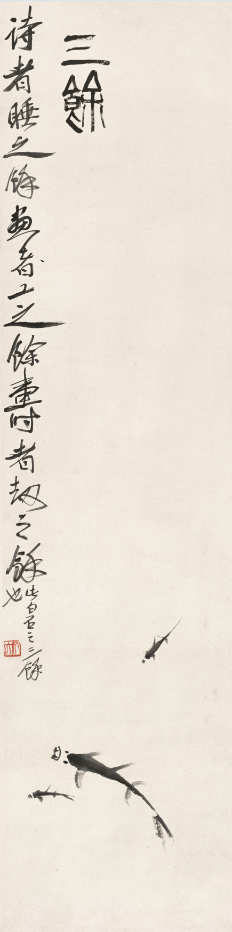 三餘
詩者睡之餘畫者工之餘壽者劫之餘
也此白石之三餘